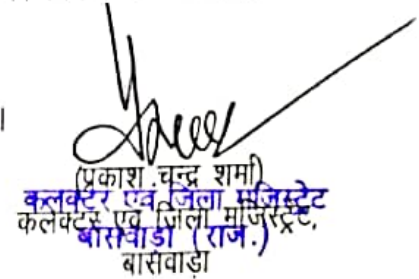 (प्रकाश चन्द्र शर्मा)
कलक्टर एवं जिला मजिस्ट्रेट
कलेक्टर एवं जिला मजिस्ट्रेट,
बांसवाड़ा (राज.)
बांसवाड़ा